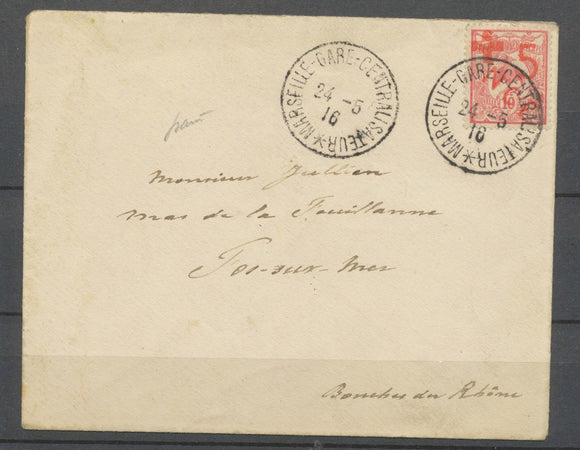 MARSEILLE-GARE-CENTRALISATEUR
24 -5
16
MARSEILLE-GARE-CENTRALISATEUR
24 -5
16
5
10
Monsieur Jullien
mas de la Fouillanne
Fos-sur-mer
Bouches du Rhône